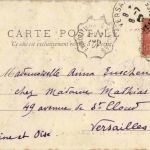 CARTE POSTALE
Ce côté est exclusivement réservé
Mademoiselle Anna
chez Madame Mathias
49 avenue de St Cloud
Versailles
Seine et Oise